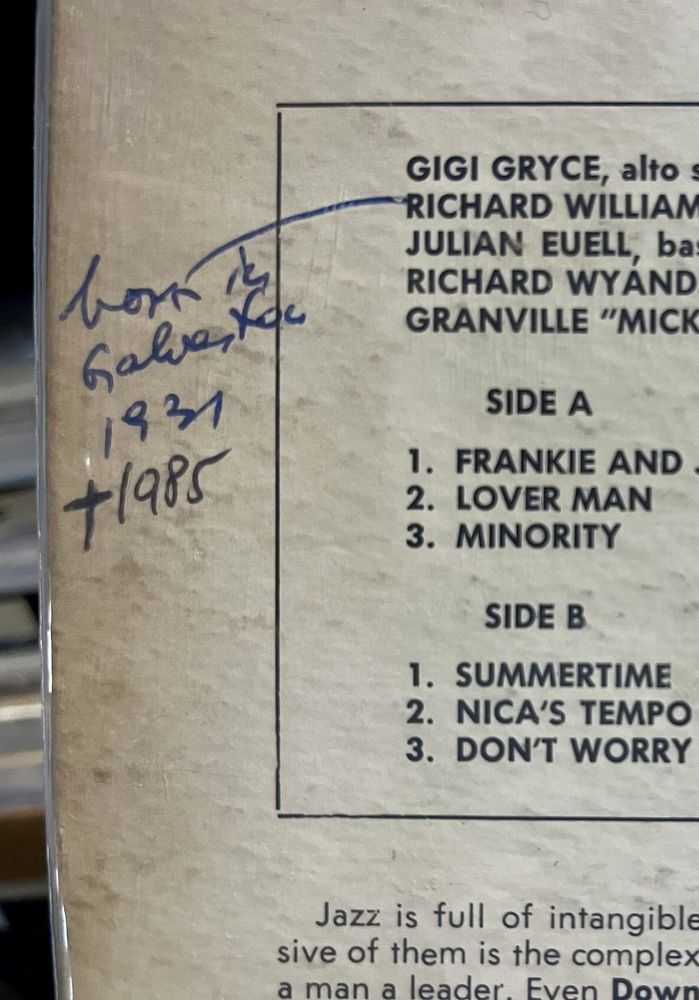 GIGI GRYCE, alto s
RICHARD WILLIAM
JULIAN EUELL, bas
RICHARD WYAND
GRANVILLE "MICK
born in
Galveston
1931
†1985
SIDE A
1. FRANKIE AND J
2. LOVER MAN
3. MINORITY
SIDE B
1. SUMMERTIME
2. NICA'S TEMPO
3. DON'T WORRY
Jazz is full of intangible
sive of them is the complex
a man a leader. Even Down